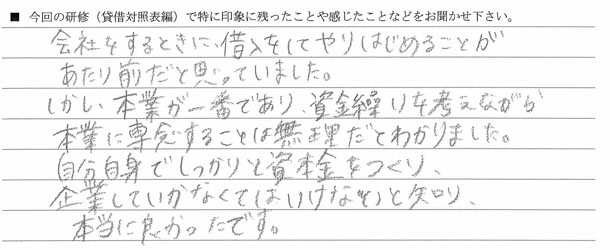 ■ 今回の研修（貸借対照表編）で特に印象に残ったことや感じたことなどをお聞かせ下さい。
会社をするときに、借入をしてやりはじめることが
あたり前だと思っていました。
しかし、本業が一番であり、資金繰りを考えながら
本業に専念することは無理だとわかりました。
自分自身でしっかりと資本金をつくり、
企業していかなくてはいけないと知り、
本当に良かったです。